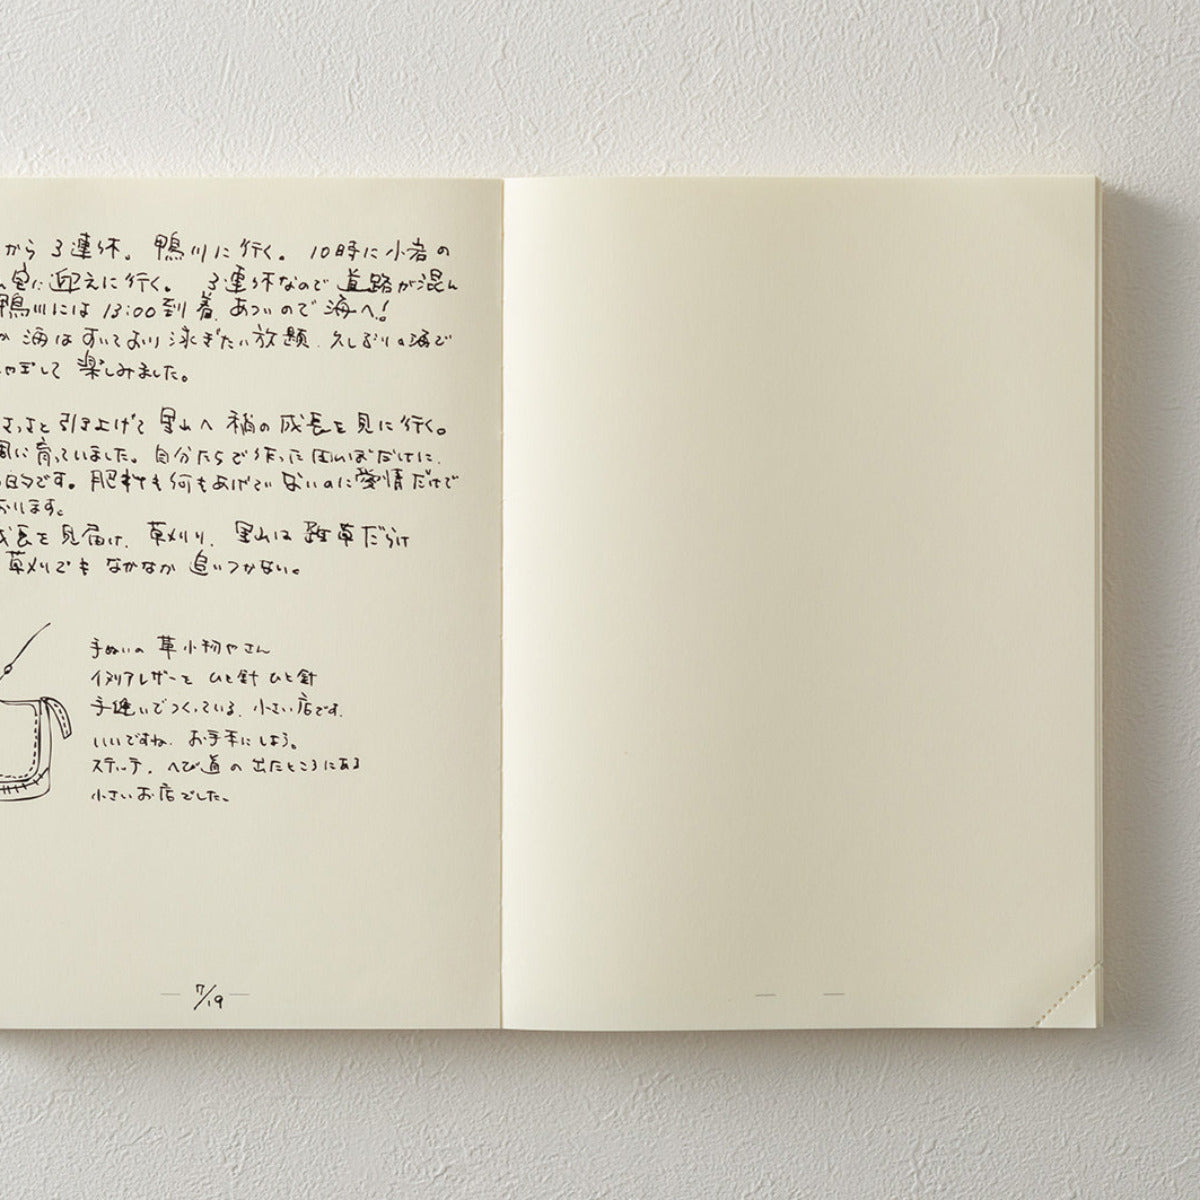 から 3連休。鴨川に行く。10時に小岩の
に迎えに行く。3連休なので道路が混ん
鴨川には 13:00到着、あついので海へ!
海はすいており泳ぎたい放題、久しぶりの海で
して楽しみました。
さっさと引き上げて里山へ稲の成長を見に行く。
に育っていました。自分たちで作った田んぼだけに、
的です。肥料も何もあげていないのに愛情だけで
おります。
成長を見届け、草刈り、里山は雑草だらけ
草刈りでもなかなか追いつかない。
手ぬいの革小物やさん
イタリアレザーを ひと針 ひと針
手縫いでつくっている、小さい店です。
いいですね、お手本にしよう。
ステッチ、へび道の出たところにある
小さいお店でした。
7/19